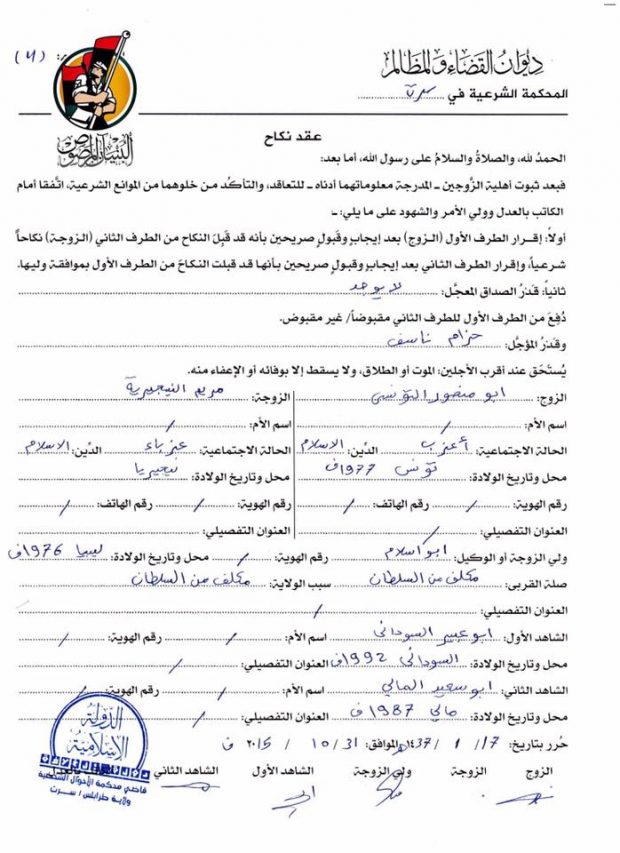 ديوان القضاء والمظالم
المحكمة الشرعية في سرت
البنيان المرصوص
عقد نكاح
الحمدُ لله، والصلاةُ والسلامُ على رسول الله، أما بعد:
فبعد ثبوت أهلية الزَّوجين ــ المدرجة معلوماتهما أدناه ــ للتعاقد، والتأكد من خلوهما من الموانع الشرعية، اتَّفقا أمام
الكاتب بالعدل وولي الأمر والشهود على ما يلي: ــ
أولاً: إقرار الطرف الأول (الزوج) بعد إيجابٍ وقَبولٍ صريحين بأنه قد قَبِلَ النكاح من الطرف الثاني (الزوجة) نكاحاً
شرعياً، وإقرار الطرف الثاني بعد إيجابٍ وقبولٍ صريحين بأنها قد قبلت النكاحَ من الطرف الأول بموافقة وليها.
ثانياً: قَدَرُ الصداق المعجَّل: لا يوجد
دُفِعَ من الطرف الأول للطرف الثاني مقبوضاً/ غير مقبوض.
وقَدَرُ المؤجَّل: حزام ناسف
يُستَحَق عند أقرب الأجلين: الموت أو الطلاق، ولا يسقط إلا بوفائه أو الإعفاء منه.
الزوج: ابو منصور التونسي الزوجة: مريم النيجيرية
اسم الأم: / اسم الأم: /
الحالة الاجتماعية: أعزب الدِّين: الاسلام الحالة الاجتماعية: عزباء الدِّين: الاسلام
محل وتاريخ الولادة: تونس 1977ف محل وتاريخ الولادة: نيجيريا
رقم الهوية: / رقم الهاتف: / رقم الهوية: / رقم الهاتف: /
العنوان التفصيلي: / العنوان التفصيلي: /
ولي الزوجة أو الوكيل: ابو اسلام رقم الهوية: / محل وتاريخ الولادة: ليبيا 1976ف
صلة القربى: مكلف من السلطان سبب الولاية: مكلف من السلطان
العنوان التفصيلي: /
الشاهد الأول: ابو عبير السوداني اسم الأم: / رقم الهوية: /
محل وتاريخ الولادة: السوداني 1992ف العنوان التفصيلي: /
الشاهد الثاني: ابو سعيد المالي اسم الأم: / رقم الهوية: /
محل وتاريخ الولادة: مالي 1987ف العنوان التفصيلي: /
حُرر بتاريخ: 17 / 1 / ١٤37هـ الموافق: 31 / 10 / ٢٠15 ف
الزوج الزوجة ولي الزوجة الشاهد الأول الشاهد الثاني
الدولة
الإسلامية
قاضي محكمة الأحوال الشخصية
ولاية طرابلس / سرت